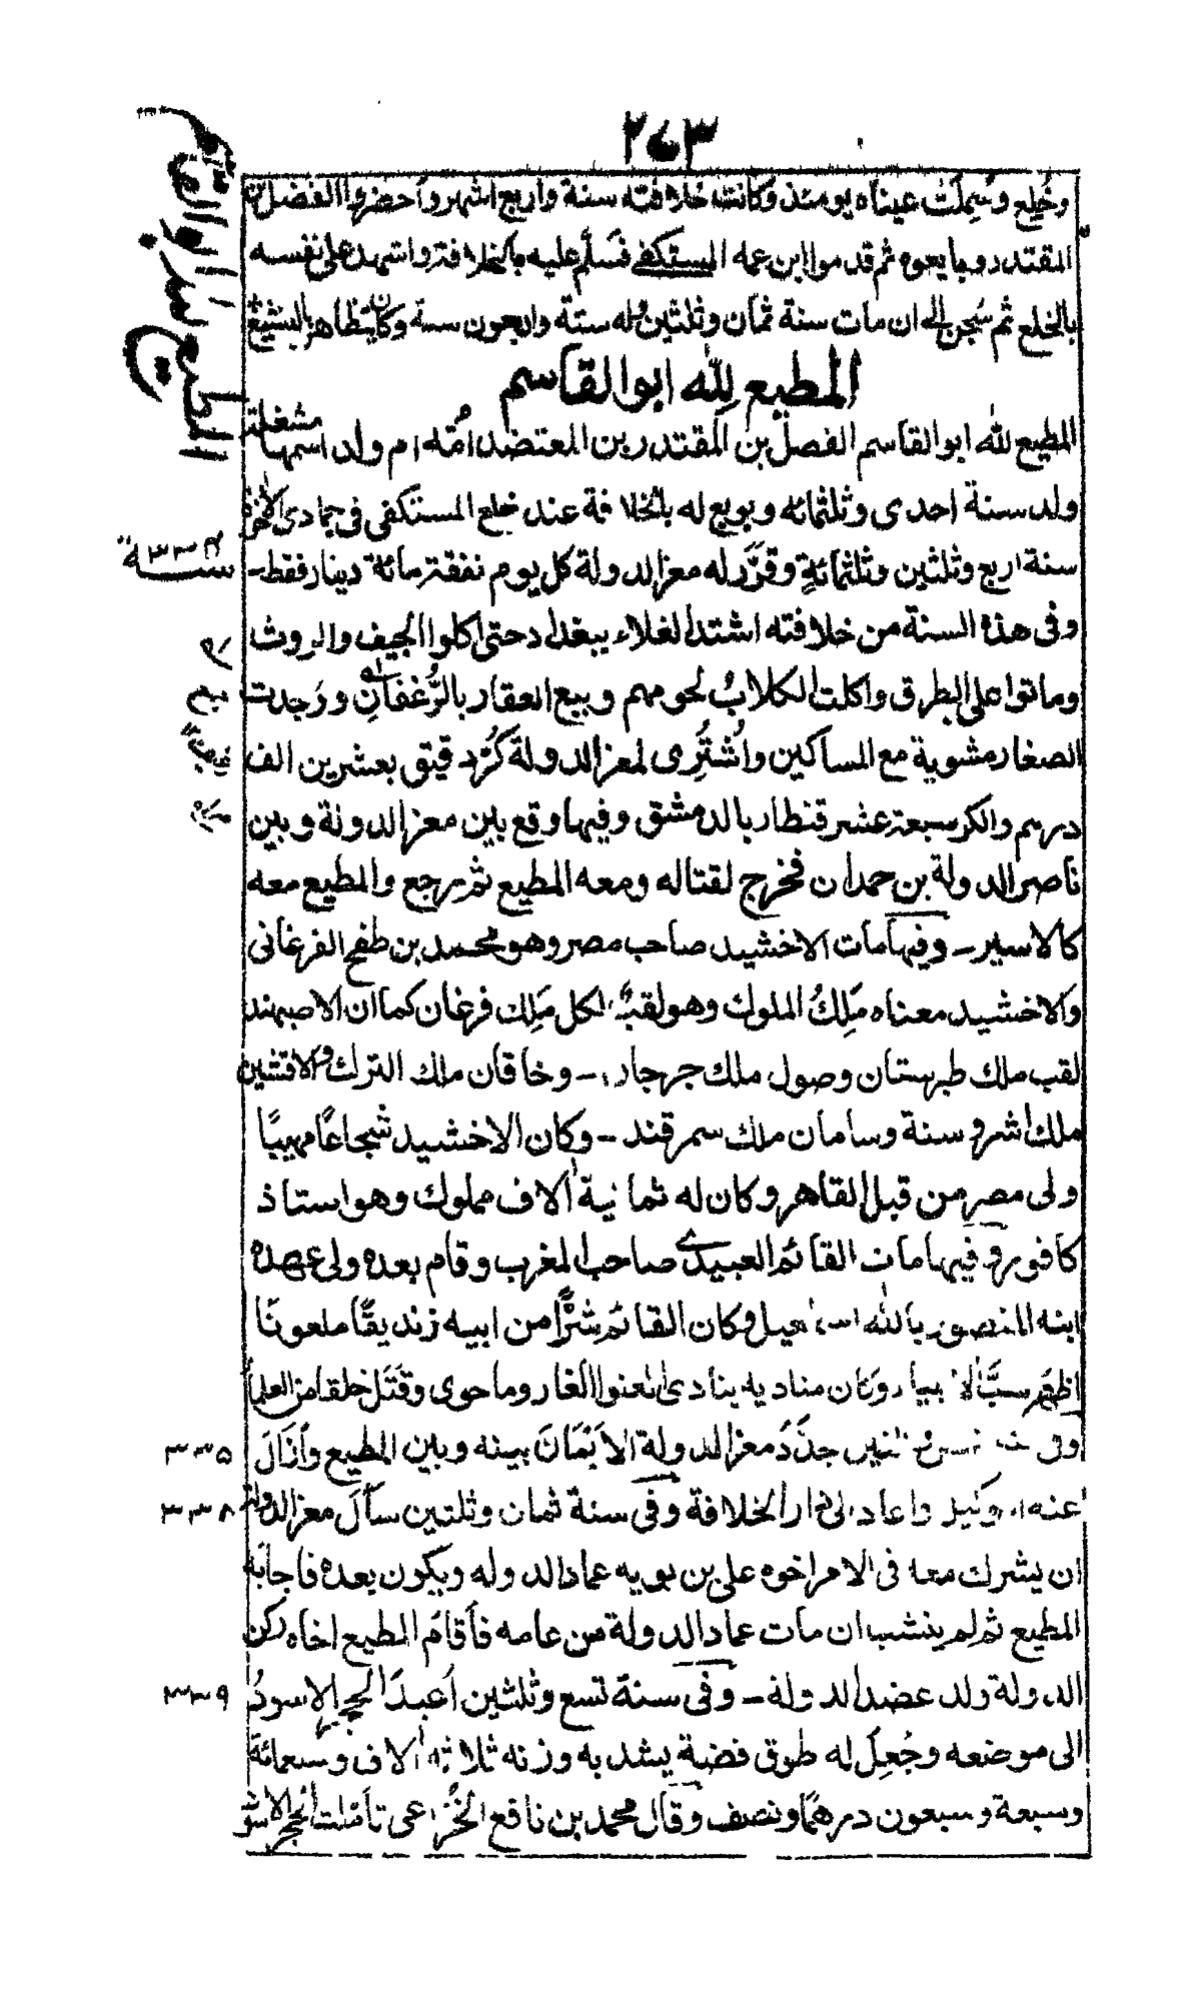 ٢٧٣
وخُلِع وسُمِلَتْ عيناه يومئذ وكانت خلافته سنة واربع اشهر وأحضروا الفضل بن
المقتدر وبايعوه ثم قدموا ابن عمه المستكفي فسَلَّم عليه بالخلافة واشهد على نفسه
بالخلع ثم سُجن الى ان مات سنة ثمان وثلثين وله ستة واربعون سنة وكان يتظاهر بالتشيع
المطيع لله ابو القاسم
المطيع لله ابو القاسم الفضل بن المقتدر بن المعتضد اُمّه ام ولد اسمها مشغلة
ولد سنة احدى وثلثمائه وبويع له بالخلافة عند خلع المستكفى فى جمادى الاخرة
سنة اربع وثلثين وثلثمائةٍ وقرَّر له معز الدولة كل يوم نفقة مائة دينار فقط -
وفى هذه السنة من خلافته اشتد الغلاء ببغداد حتى اكلوا الجيف والروث
وماتوا على الطرق واكلت الكلابُ لحومهم وبيع العقار بالرُّغفانِ ووَجدت
الصغار مشوية مع المساكين واُشتُرِى لمعز الدولة كُرّ دقيق بعشرين الف
درهم والكر سبعة عشر قنطار بالدمشق وفيها وقع بين معز الدولة وبين
ناصر الدولة بن حمدان فخرج لقتاله ومعه المطيع ثم رجع والمطيع معه
كالاسير - وفيها مات الاخشيد صاحب مصر وهو محمد بن طغج الفرغانى
والاخشيد معناه مَلِكُ الملوك وهو لقبٌ لكل مَلِك فرغان كما ان الاصبهند
لقب ملك طبرستان وصول ملك جرجان - وخاقان ملك الترك والافشين
ملك اشروسنة وسامان ملك سمرقند - وكان الاخشيد شجاعًا مهيبًا
ولى مصر من قبل القاهر وكان له ثمانية اٰلاف مملوك وهو استاذ
كافور وفيها مات القائم العبيدى صاحب المغرب وقام بعده ولى عهده
ابنه المنصور بالله اسماعيل وكان القائم شرًّا من ابيه زنديقًا ملعونًا
اظهر سبَّ الانبياء وكان مناديه ينادى العنوا الغار وما حوى وقَتَل خلقا من العلماء
وفى سنة خمس وثلثين جدَّدَ معز الدولة الاَيْمَانَ بينه وبين المطيع وأزَالَ
عنه التوكيل واعاده الى دار الخلافة وفى سنة ثمان وثلثين سأل معز الدولة
ان يشرك معه فى الامر اخوه على بن بويه عماد الدوله ويكون بعده فاجابه
المطيع ثم لم ينشب ان مات عماد الدولة من عامه فأقام المطيع اخاه ركن
الدولة ولد عضد الدولة - وفى سنة تسع وثلثين اُعيدَ الحجر الاسودُ
الى موضعه وجُعِلَ له طوق فضة يشد به وزنه ثلاثة اٰلاف وسبعمائة
وسبعة وسبعون درهمًا ونصف وقال محمد بن نافع الخُزاعى تأملت الحجر الاسود
المطيع لله ابو القاسم
سنة ٣٣٤
٣٣٥
٣٣٨
٣٣٩